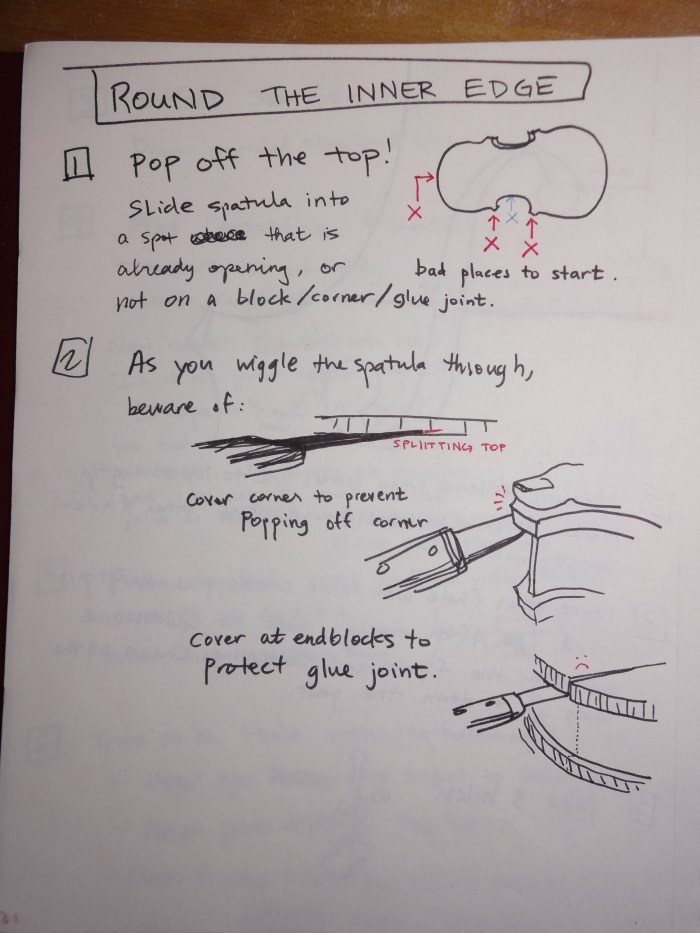 ROUND THE INNER EDGE
1 Pop off the top!
Slide spatula into
a spot that is
already opening, or
not on a block/corner/glue joint.
X
X
X
X
bad places to start.
2 As you wiggle the spatula through,
beware of:
SPLIITTING TOP
Cover corner to prevent
Popping off corner
Cover at endblocks to
Protect glue joint.